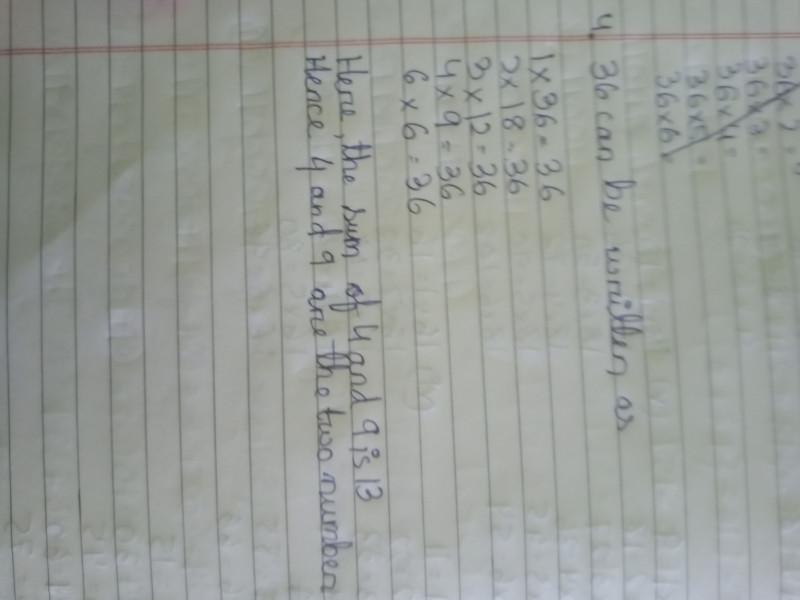 36 x 2 =
36 x 3 =
36 x 4 =
36 x 5 =
36 x 6
4. 36 can be written as
1 x 36 = 36
2 x 18 = 36
3 x 12 = 36
4 x 9 = 36
6 x 6 = 36
Here, the sum of 4 and 9 is 13
Hence 4 and 9 are the two number